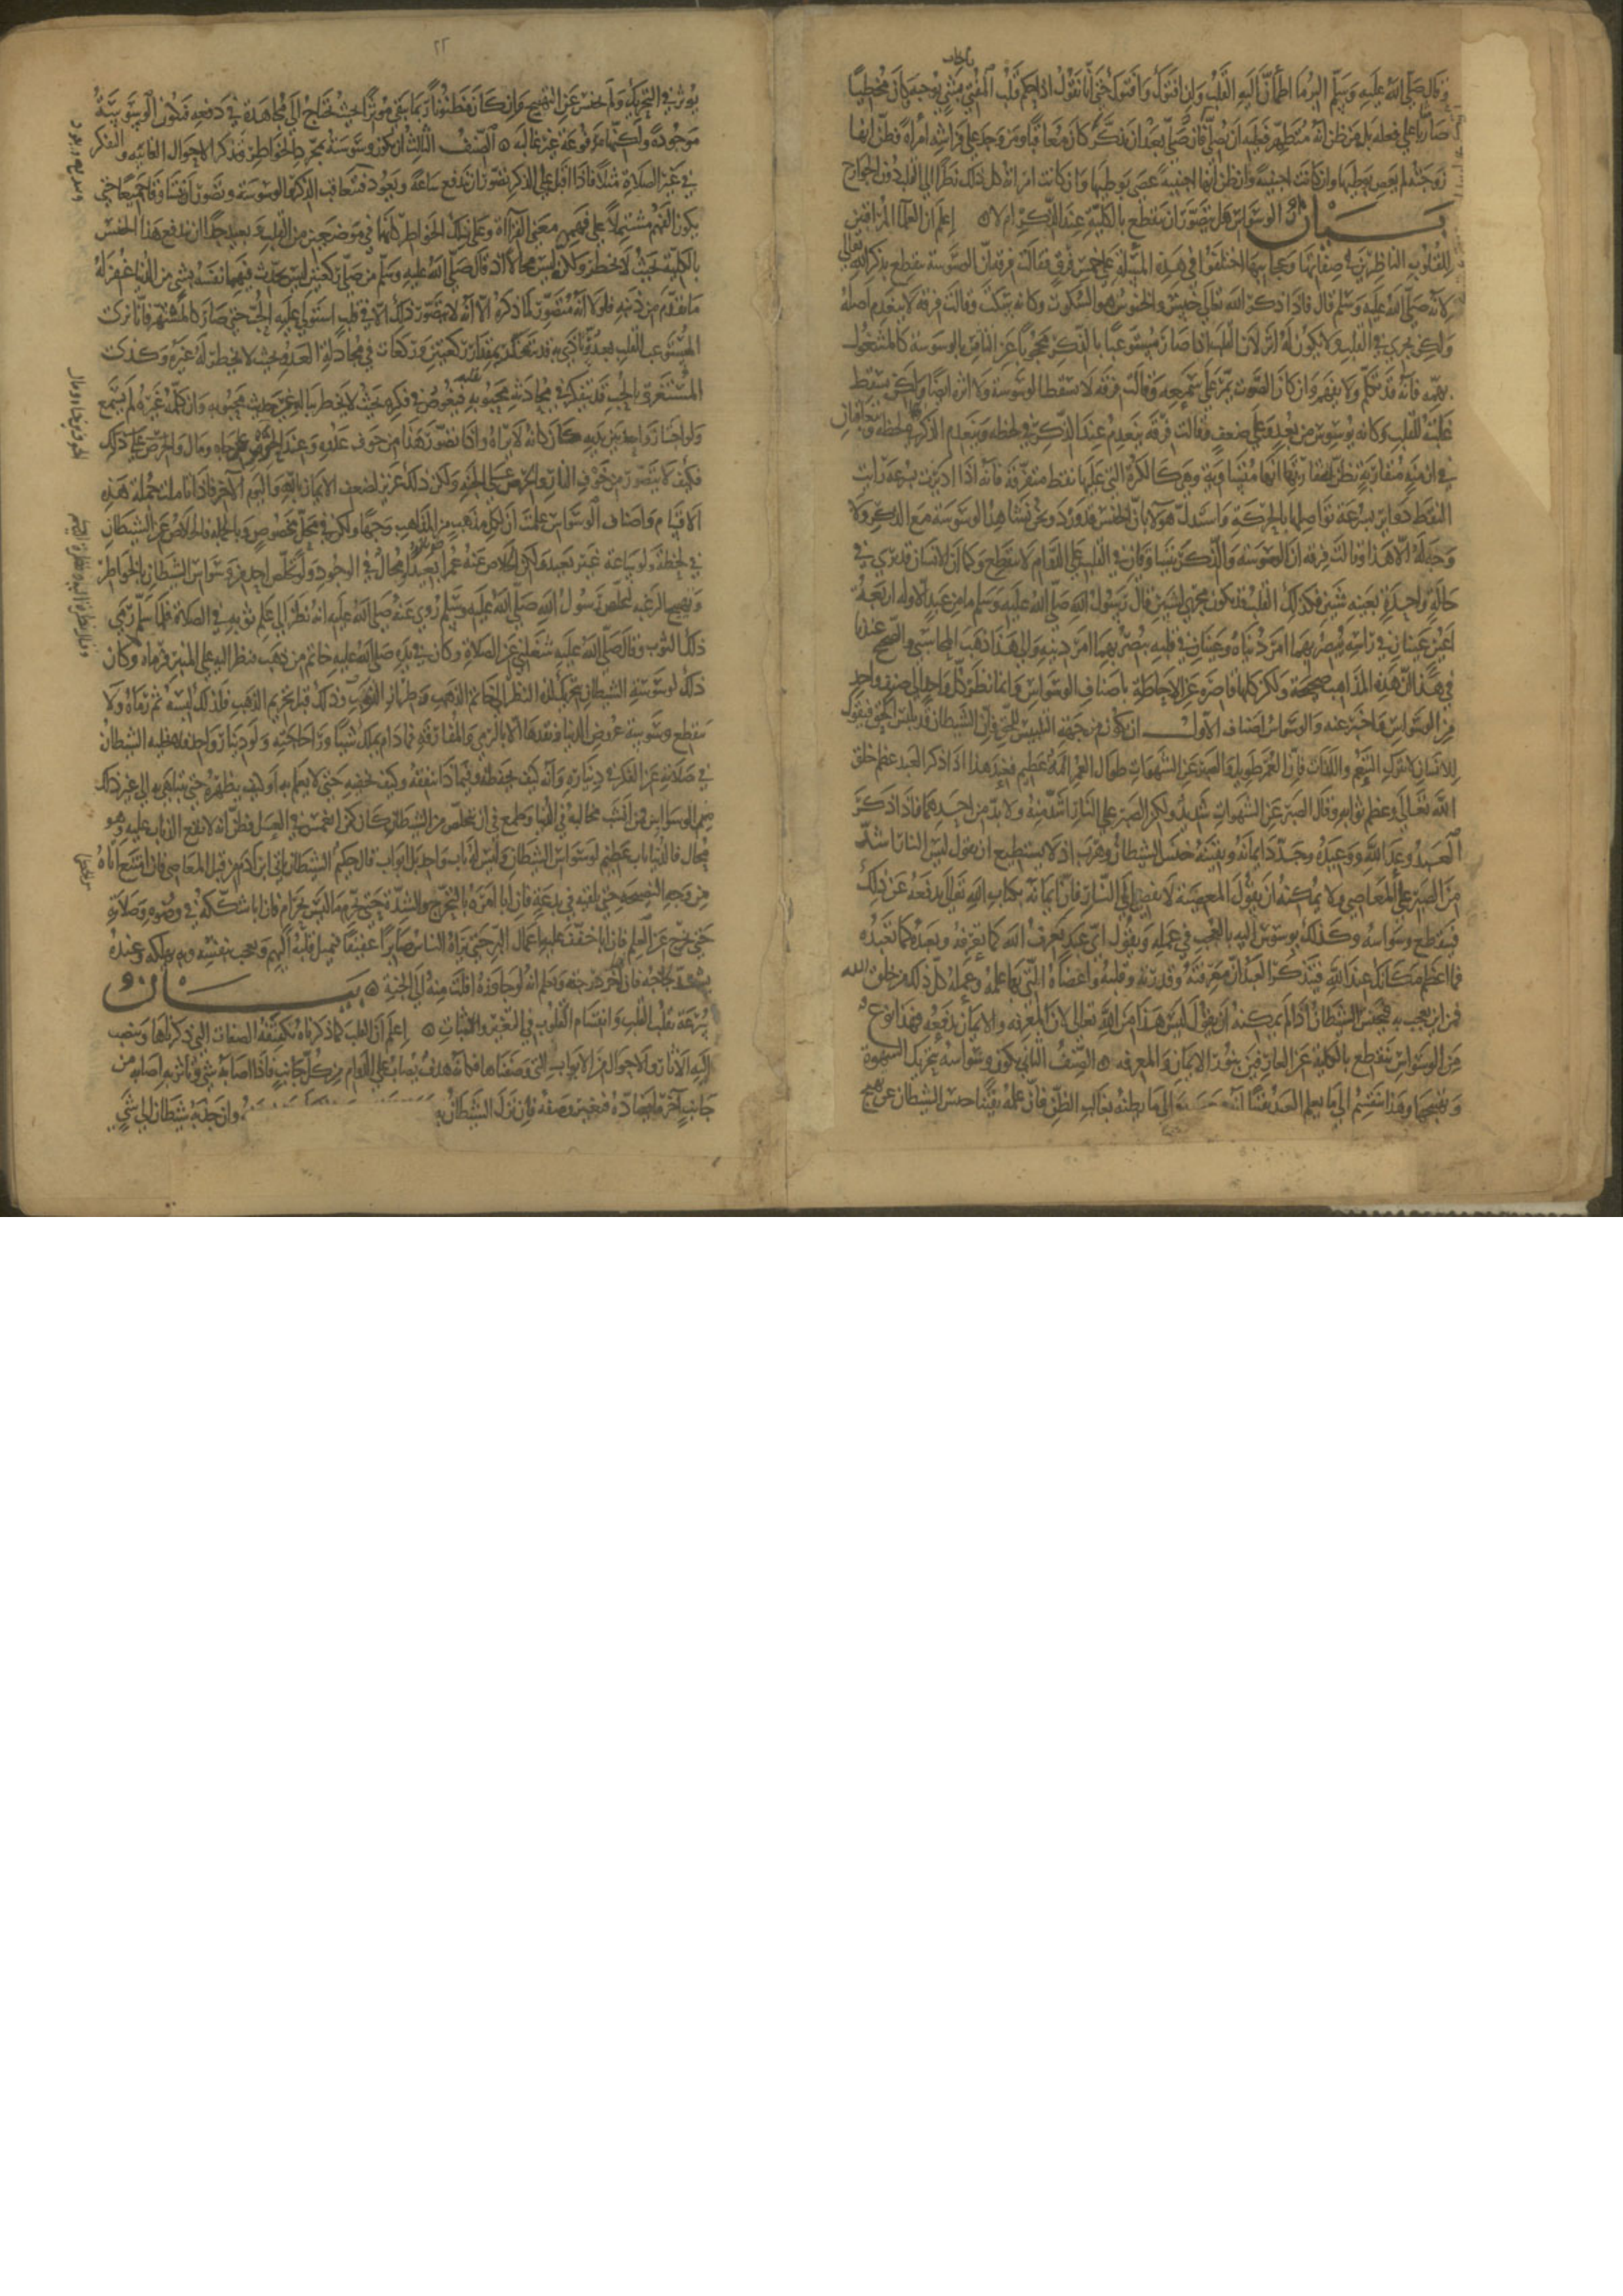 وقال صلى الله عليه وسلم البر ما اطمأن اليه القلب وان افتوك وافتوك حتى انا نقول اذا حكم قلب المفتي بشي بوجه وكان مخطيا
صار مثابا على فعله بل من ظن انه متطهر فعليه ان يصلي فان صلى بعد ان تذكر كان معاقبا ومن وجد على فراشه امرأة فظن انها
زوجته لم يعص بوطيها وان كانت اجنبية وان ظن انها اجنبية عصى بوطيها وان كانت امرأته كل ذلك نظرا الى القلب دون الجوارح
بيان ان الوسواس هل يتصور ان ينقطع بالكلية عند الذكر ام لا اعلم ان العلماء المراقبين
للقلوب الناظرين في صفاتها وعجايبها اختلفوا في هذه المسئلة على خمس فرق فقالت فرقة ان الوسوسة ينقطع بذكر الله تعالى
لانه صلى الله عليه وسلم قال فاذا ذكر الله تعالى خنس والخنوس هو السكوت وكانه يسكت وقالت فرقة لا ينعدم اصله
ولكن يجري في القلب ولا يكون له اثر لان القلب اذا صار مستوعبا بالذكر محجوبا عن التاثر بالوسوسة كالمشغول
بهمه فانه قد تكلم ولا يفهم وان كان الصوت يمر على سمعه وقالت فرقة لا تسقط الوسوسة ولا اثره ايضا ولكن يسقط
غلبته للقلب وكانه يوسوس من بعد وعلى ضعف وقالت فرقة ينعدم عند الذكر في لحظه وينعدم الذكر في لحظه ويتعاقبان
في ازمنة متقاربة يظن لتقاربها انها متساوقة وهي كالكرة التي عليها نقط متفرقة فانه اذا اديرت بسرعة رايت
النقط دواير بسرعة تواصلها بالحركة واستدل هولا بان الخنس قد ورد ونحن نشاهد الوسوسة مع الذكر ولا
وجه له الا هذا وقالت فرقة ان الوسوسة والذكر يتساوقان في القلب على الدوام لا ينقطع وكما ان الانسان قد يرى في
حالة واحدة بعينه شيين فكذلك القلب قد يكون مجرى لشيين قال رسول الله صلى الله عليه وسلم ما من عبد الا وله اربعة
اعين عينان في راسه يبصر بهما امر دنياه وعينان في قلبه يبصر بهما امر دينه والى هذا ذهب المحاسبي والصحيح عندنا
في هذا ان هذه المذاهب صحيحة ولكن كلها قاصرة عن الاحاطة باصناف الوسواس وانما نظر كل واحد الى صنف واحد
من الوسواس فاخبر عنه والوسواس اصناف الاول ان يكون من جهة التلبيس للحق فان الشيطان قد يلبس بالحق فيقول
للانسان لا تترك التنعم واللذات فان العمر طويل والصبر عن الشهوات طوال العمر المه عظيم فعند هذا اذا ذكر العبد عظم حق
الله تعالى وعظم ثوابه وقال الصبر عن الشهوات شديد ولكن الصبر على النار اشد منه ولا بد من احدهما فاذا ذكر
العبد وعد الله ووعيده وجدد ايمانه ويقينه خنس الشيطان وهرب اذ لا يستطيع ان يقول ليس النار اشد
من الصبر على المعاصي ولا يمكنه ان يقول المعصية لا تفضي الى النار فان ايمانه بكتاب الله تعالى يدفعه عن ذلك
فينقطع وسواسه وكذلك يوسوس اليه بالعجب في عمله ويقول اي عبد يعرف الله كما تعرفه ويعبده كما تعبده
فما اعظم مكانك عند الله فيتذكر العبد ان معرفته وقدرته وقلبه واعضاه التي بها عمله وعمله كل ذلك من خلق الله
فمن اين يعجب به فيخنس الشيطان اذ لم يمكنه ان يقول ليس هذا من الله تعالى لان المعرفة والايمان يدفعه فهذا نوع
من الوسواس ينقطع بالكلية عن العارفين بنور الايمان والمعرفة الصنف الثاني ان يكون وسواسه بتحريك الشهوة
وتهييجها وهذا تنقسم الى ما يعلم العبد يقينا انه معصية والى ما يظنه بغالب الظن فان علمه يقينا خنس الشيطان عن تهييج
يوثر في التحريك ولم يخنس عن التهييج وان كان مظنونا ربما بقى موثرا بحيث يحتاج الى مجاهدة في دفعه فتكون الوسوسة
موجودة ولكنها مدفوعة غير غالبة الصنف الثالث ان يكون وسوسة بمجرد الخواطر وتذكر الاحوال الغايبة والفكر
في غير الصلاة مثلا فاذا اقبل على الذكر تصور ان يندفع ساعة ويعود فيتعاقب الذكر والوسوسة وتصور ان يتساوقا جميعا حتى
يكون الفهم مشتملا على فهم معنى القراة وعلى تلك الخواطر كانها في موضعين من القلب وبعيد جدا ان يندفع هذا الخنس
بالكلية بحيث لا يخطر ولكنه ليس محالا اذ قال صلى الله عليه وسلم من صلى ركعتين ليس يحدث فيهما نفسه بشي من الدنيا غفر له
ما تقدم من ذنبه فلولا انه متصور لما ذكره الا انه لا يتصور ذلك الا في قلب استولى عليه الحب حتى صار كالمشتهر فانا نرى
المستوعب القلب بعدو تاذى به قد يتفكر بمقدار ركعتين وركعات في مجادلة العدو بحيث لا يخطر له غيره وكذلك
المستغرق بالحب قد يتفكر في محادثة محبوبه بقلبه فيغوص في فكره بحيث لا يخطر بباله غير حديث محبوبه وان كلمه غيره لم يسمع
ولو اجتاز واحد بين يديه كان كانه لا يراه واذا تصور هذا من خوف عدو وعند الحرص على جاه ومال والحرص على ذلك
فكيف لا يتصور من خوف النار والحرص على الجنة ولكن ذلك عزيز لضعف الايمان بالله واليوم الآخر فاذا تاملت جملة هذه
الاقسام واصناف الوسواس علمت ان لكل مذهب من المذاهب وجها ولكن في محل مخصوص وبالجملة فالخلاص عن الشيطان
في لحظة ولو ساعة غير بعيد ولكن الخلاص عنه عمرا بعيدا ومحال في الوجود ولو تخلص احد من وسواس الشيطان بالخواطر
وتهييج الرغبة لتخلص رسول الله صلى الله عليه وسلم روي عنه صلى الله عليه انه نظر الى علم ثوبه في الصلاة فلما سلم رمى
ذلك الثوب وقال صلى الله عليه شغلني عن الصلاة وكان في يده صلى الله عليه خاتم من ذهب فنظر اليه على المنبر فرماه وكان
ذلك لوسوسة الشيطان بتحريك لذة النظر الى خاتم الذهب وطراز الثوب وذلك قبل تحريم الذهب فلذلك لبسه ثم رماه ولا
تنقطع وسوسة عروض الدنيا ونقدها الا بالرمي والمفارقة فما دام يملك شيا وراء حاجته ولو دينار واحد فلا يخليه الشيطان
في صلاته عن الفكر في ديناره وانه كيف يحفظه وفيما ذا ينفقه وكيف يخفيه حتى لا يعلم به او كيف يظهره حتى يتباهى به الى غير ذلك
من الوسواس فمن انشب مخالبه في الدنيا وطمع في ان يتخلص من الشيطان كان كمن انغمس في العسل فظن انه لا يقع الذباب عليه وهو
محال فالدنيا باب عظيم لوسواس الشيطان وليس له باب واحد بل ابواب قال حكيم الشيطان ياتي ابن آدم من قبل المعاصي فان امتنع اتاه
من وجه النصيحة حتى يلقيه في بدعة فان ابا امره بالتحرج والشدة حتى يحرم ما ليس بحرام فان ابا شككه في وضوه وصلاته
حتى يخرج عن العلم فان ابا خفف عليه اعمال البر حتى يراه الناس صابرا عفيفا فتميل قلوبهم اليهم ويعجب بنفسه وبه يهلكه وعنده
يشتد لجاجه فانه اخر درجته ويعلم انه لو جاوزه افلت منه الى الجنة بيان
سرعة تقلب القلب وانقسام القلوب في التغير والثبات اعلم ان القلب كما ذكرناه تكتنفه الصفات التي ذكرناها وتنصب
اليه الآثار والاحوال من الابواب التي وصفناها فكانه هدف يصاب على الدوام من كل جانب فاذا اصابه شي وتاثر به اصابه من
جانب آخر ما يضاده فيغير وصفه فان نزل الشيطان به وان جذبه شيطان الى شي